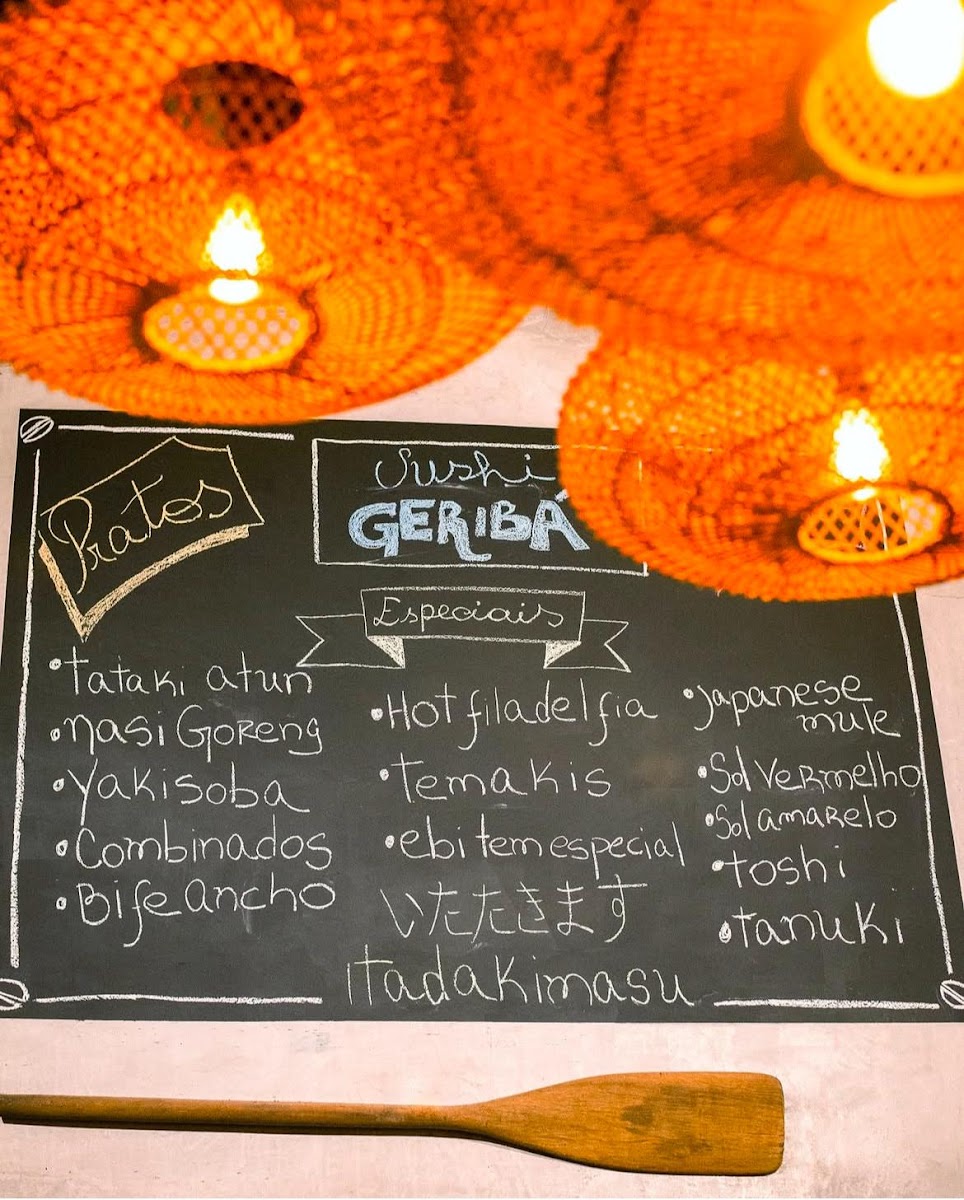 Pratos
Sushi
GERIBÁ
Especiais
•tataki atun
•nasi Goreng
•yakisoba
•Combinados
•Bife ancho
•Hot filadelfia
•temakis
•ebi tem especial
いたたきます
itadakimasu
•japanese
mule
•Sol vermelho
•Sol amarelo
•toshi
•tanuki